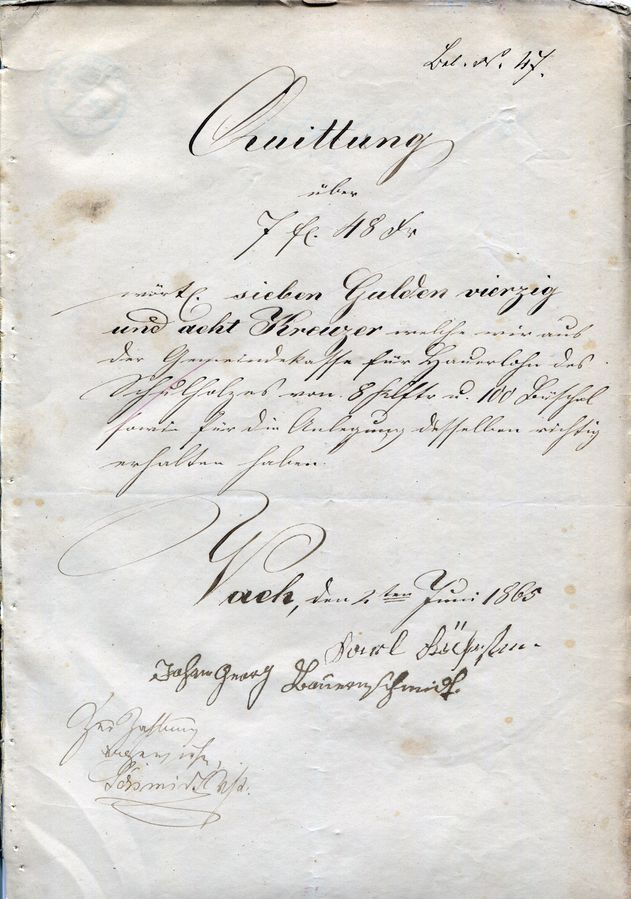 Bel. No. 47.
Quittung
über
7 fl. 48 Kr
wörtl. sieben Gulden vierzig
und acht Kreuzer welche wir aus
der Gemeindekasse für Hauerlohn des
Schulholzes von 8 Klftr u. 100 Büschel
sowie für die Anlegung desselben richtig
erhalten haben.
Vach, den 2ten Juni 1865
Karl
Johann Georg Bauernschmidt.
Zur Zahlung
angewiesen,
Schmidt